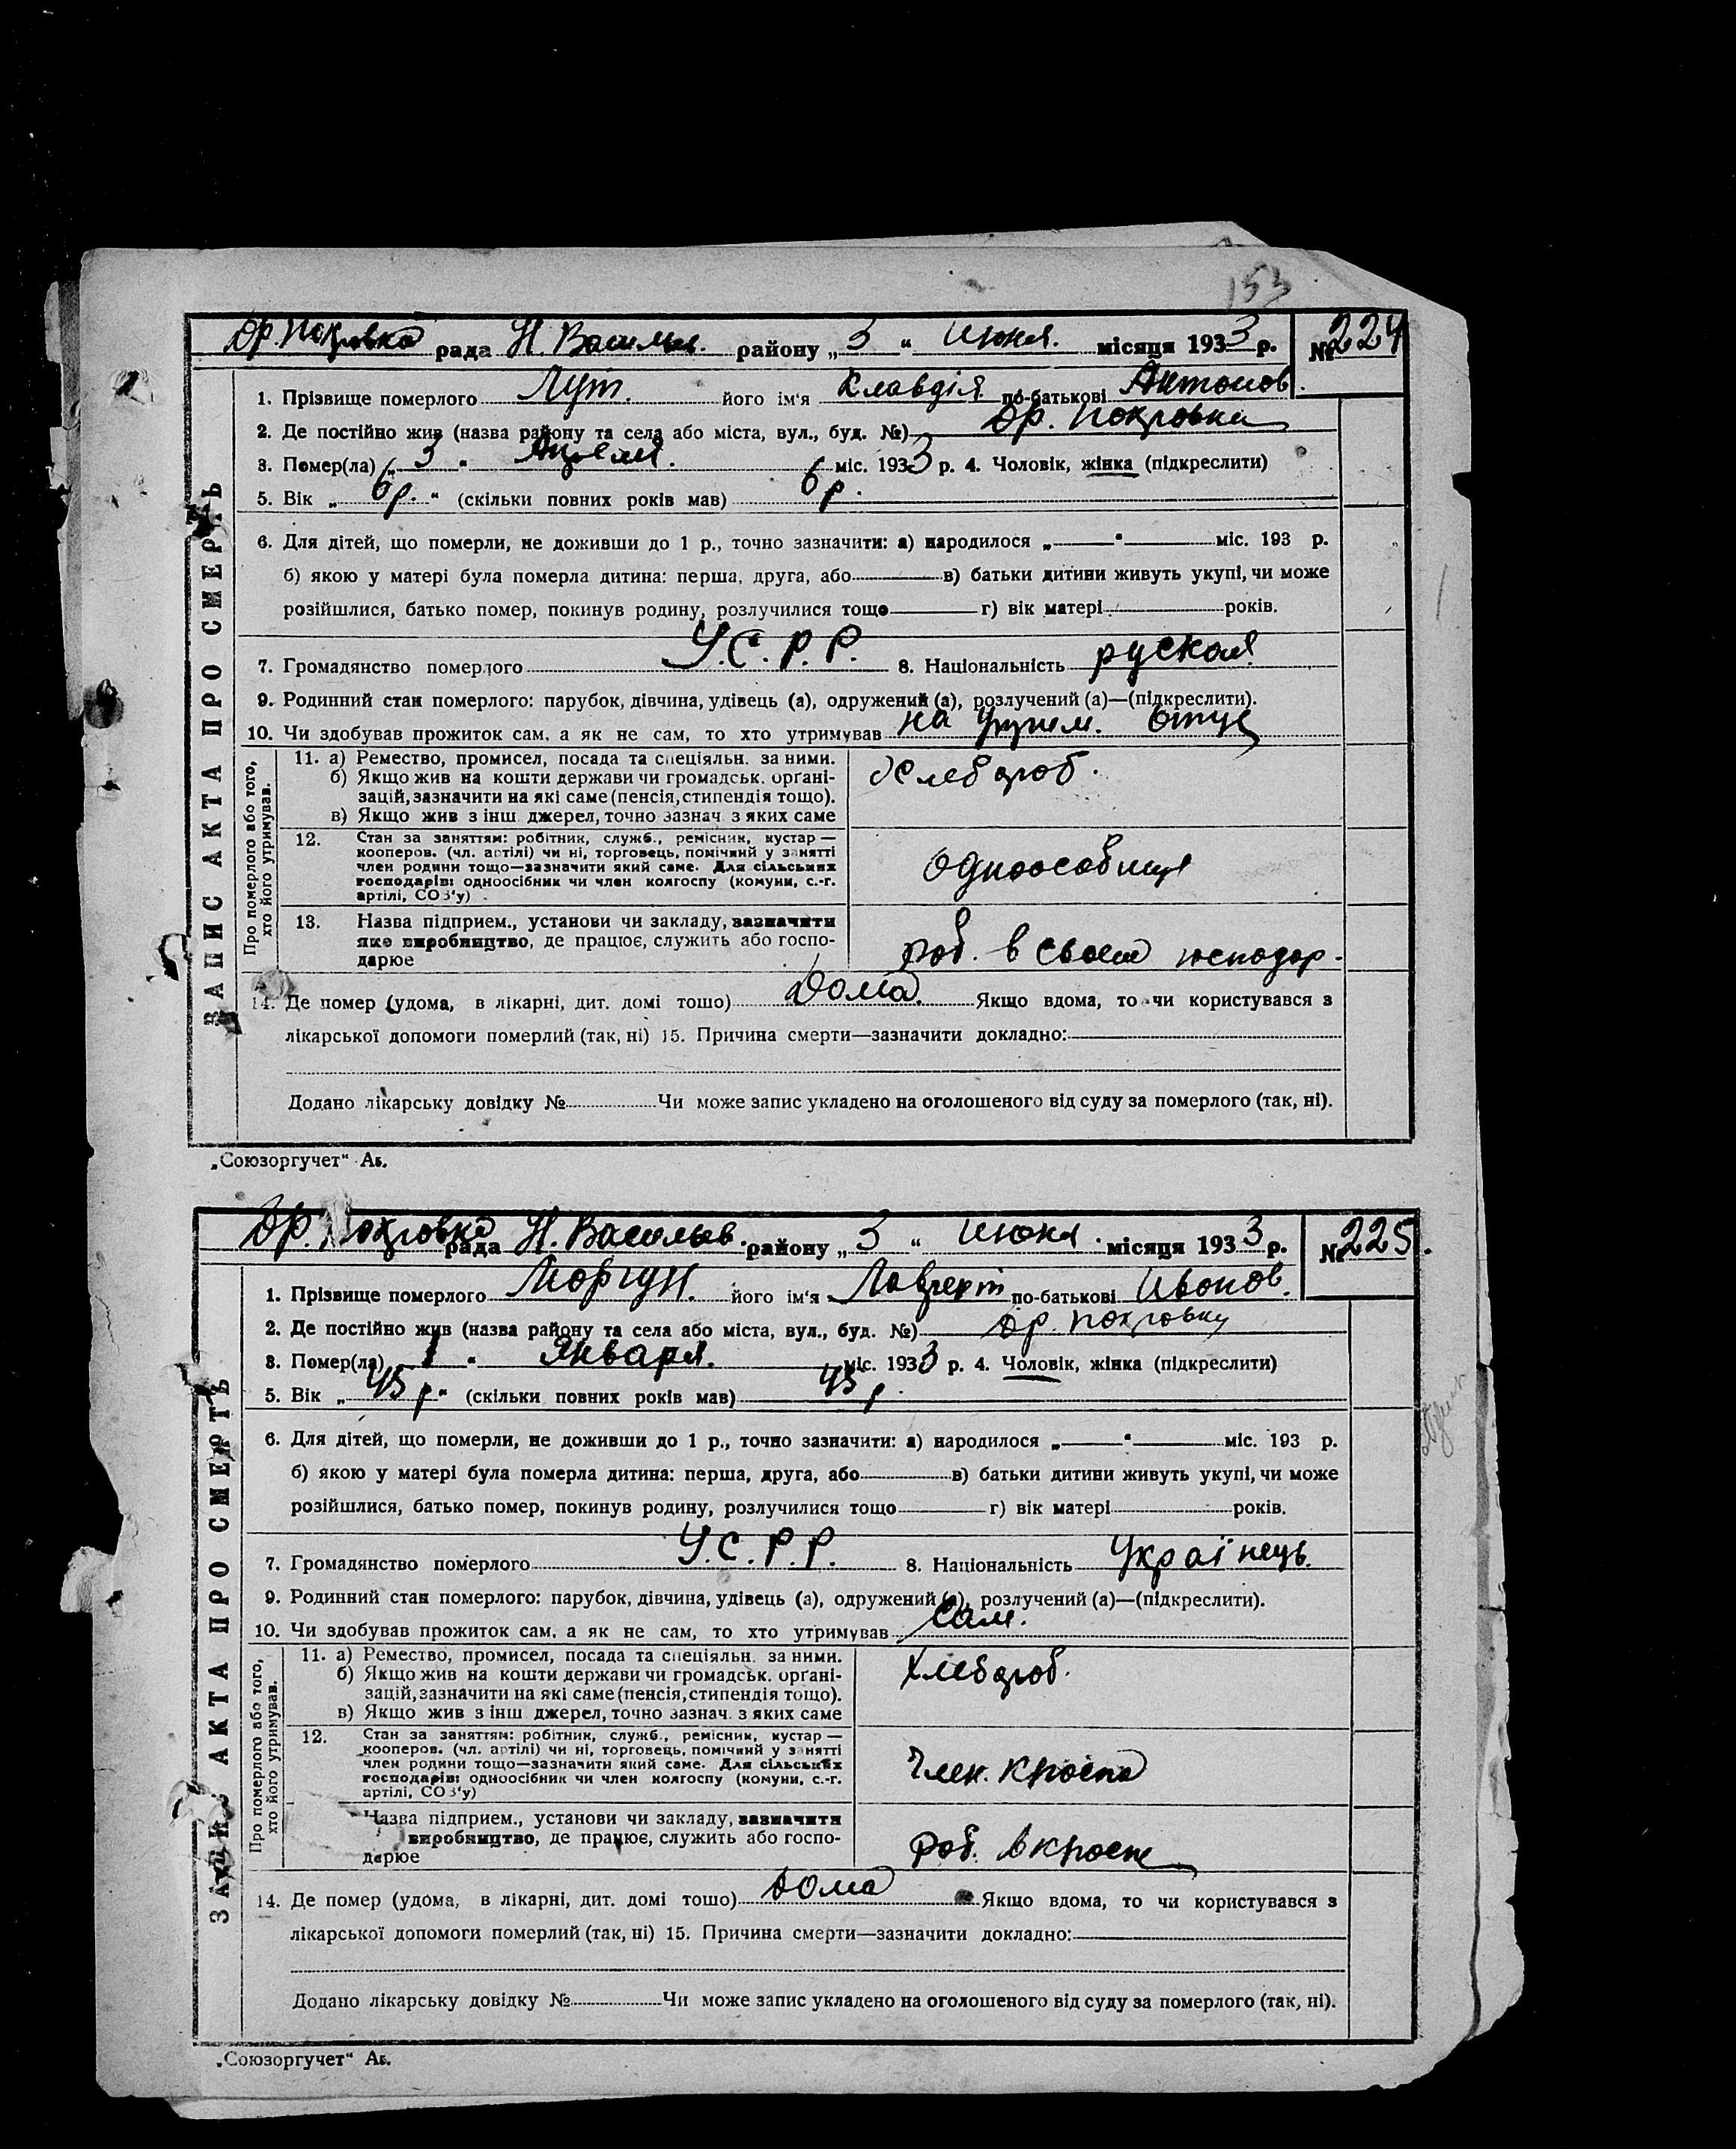 153
Др. Покровка рада Н. Васильев. району „ 3 “ Июня. місяця 1933 р. № 224
ЗАПИС АКТА ПРО СМЕРТЬ
1. Прізвище померлого Лут. його ім'я Клавдія по-батькові Антонов.
2. Де постійно жив (назва району та села або міста, вул., буд. №) Др. Покровка
3. Помер(ла) „ 3 “ Апреля. міс. 1933 р. 4. Чоловік, жінка (підкреслити)
5. Вік „ 6 р. “ (скільки повних років мав) 6 р.
6. Для дітей, що померли, не доживши до 1 р., точно зазначити: а) народилося „ “ міс. 193 р.
б) якою у матері була померла дитина: перша, друга, або в) батьки дитини живуть укупі, чи може
розійшлися, батько помер, покинув родину, розлучилися тощо г) вік матері років.
7. Громадянство померлого У.С.Р.Р. 8. Національність руская
9. Родинний стан померлого: парубок, дівчина, удівець (а), одружений (а), розлучений (а)—(підкреслити).
10. Чи здобував прожиток сам, а як не сам, то хто утримував на утрим. отца
Про померлого або того, хто його утримував.
11. а) Ремество, промисел, посада та спеціяльн. за ними.
б) Якщо жив на кошти держави чи громадськ. органі-
зацій, зазначити на які саме (пенсія, стипендія тощо).
в) Якщо жив з інш джерел, точно зазнач. з яких саме
Хлебороб.
12. Стан за заняттям: робітник, служб., ремісник, кустар —
кооперов. (чл. артілі) чи ні, торговець, помічний у занятті
член родини тощо—зазначити який саме. Для сільських
господарів: одноосібник чи член колгоспу (комуни, с.-г.
артілі, СОЗ'у)
одноособница
13. Назва підприєм., установи чи закладу, зазначити
яке виробництво, де працює, служить або госпо-
дарює
роб. в своем господар.
14. Де помер (удома, в лікарні, дит. домі тощо) Дома. Якщо вдома, то чи користувався з
лікарської допомоги померлий (так, ні) 15. Причина смерти—зазначити докладно:
Додано лікарську довідку № Чи може запис укладено на оголошеного від суду за померлого (так, ні).
„Союзоргучет“ Аг.
Др. Покровка рада Н. Васильев. району „ 3 “ Июня. місяця 1933 р. № 225.
ЗАПИС АКТА ПРО СМЕРТЬ
1. Прізвище померлого Моргун. його ім'я Лаврент по-батькові Иванов.
2. Де постійно жив (назва району та села або міста, вул., буд. №) Др. Покровку
3. Помер(ла) „ 1 “ Января. міс. 1933 р. 4. Чоловік, жінка (підкреслити)
5. Вік „ 43 р. “ (скільки повних років мав) 43 р.
6. Для дітей, що померли, не доживши до 1 р., точно зазначити: а) народилося „ “ міс. 193 р.
б) якою у матері була померла дитина: перша, друга, або в) батьки дитини живуть укупі, чи може
розійшлися, батько помер, покинув родину, розлучилися тощо г) вік матері років.
7. Громадянство померлого У.С.Р.Р. 8. Національність Українець.
9. Родинний стан померлого: парубок, дівчина, удівець (а), одружений (а), розлучений (а)—(підкреслити).
10. Чи здобував прожиток сам, а як не сам, то хто утримував Сам.
Про померлого або того, хто його утримував.
11. а) Ремество, промисел, посада та спеціяльн. за ними.
б) Якщо жив на кошти держави чи громадськ. органі-
зацій, зазначити на які саме (пенсія, стипендія тощо).
в) Якщо жив з інш джерел, точно зазнач. з яких саме
Хлебороб.
12. Стан за заняттям: робітник, служб., ремісник, кустар —
кооперов. (чл. артілі) чи ні, торговець, помічний у занятті
член родини тощо—зазначити який саме. Для сільських
господарів: одноосібник чи член колгоспу (комуни, с.-г.
артілі, СОЗ'у)
Член.
Назва підприєм., установи чи закладу, зазначити
виробництво, де працює, служить або госпо-
дарює
роб. в
14. Де помер (удома, в лікарні, дит. домі тощо) Дома Якщо вдома, то чи користувався з
лікарської допомоги померлий (так, ні) 15. Причина смерти—зазначити докладно:
Додано лікарську довідку № Чи може запис укладено на оголошеного від суду за померлого (так, ні).
„Союзоргучет“ Аг.